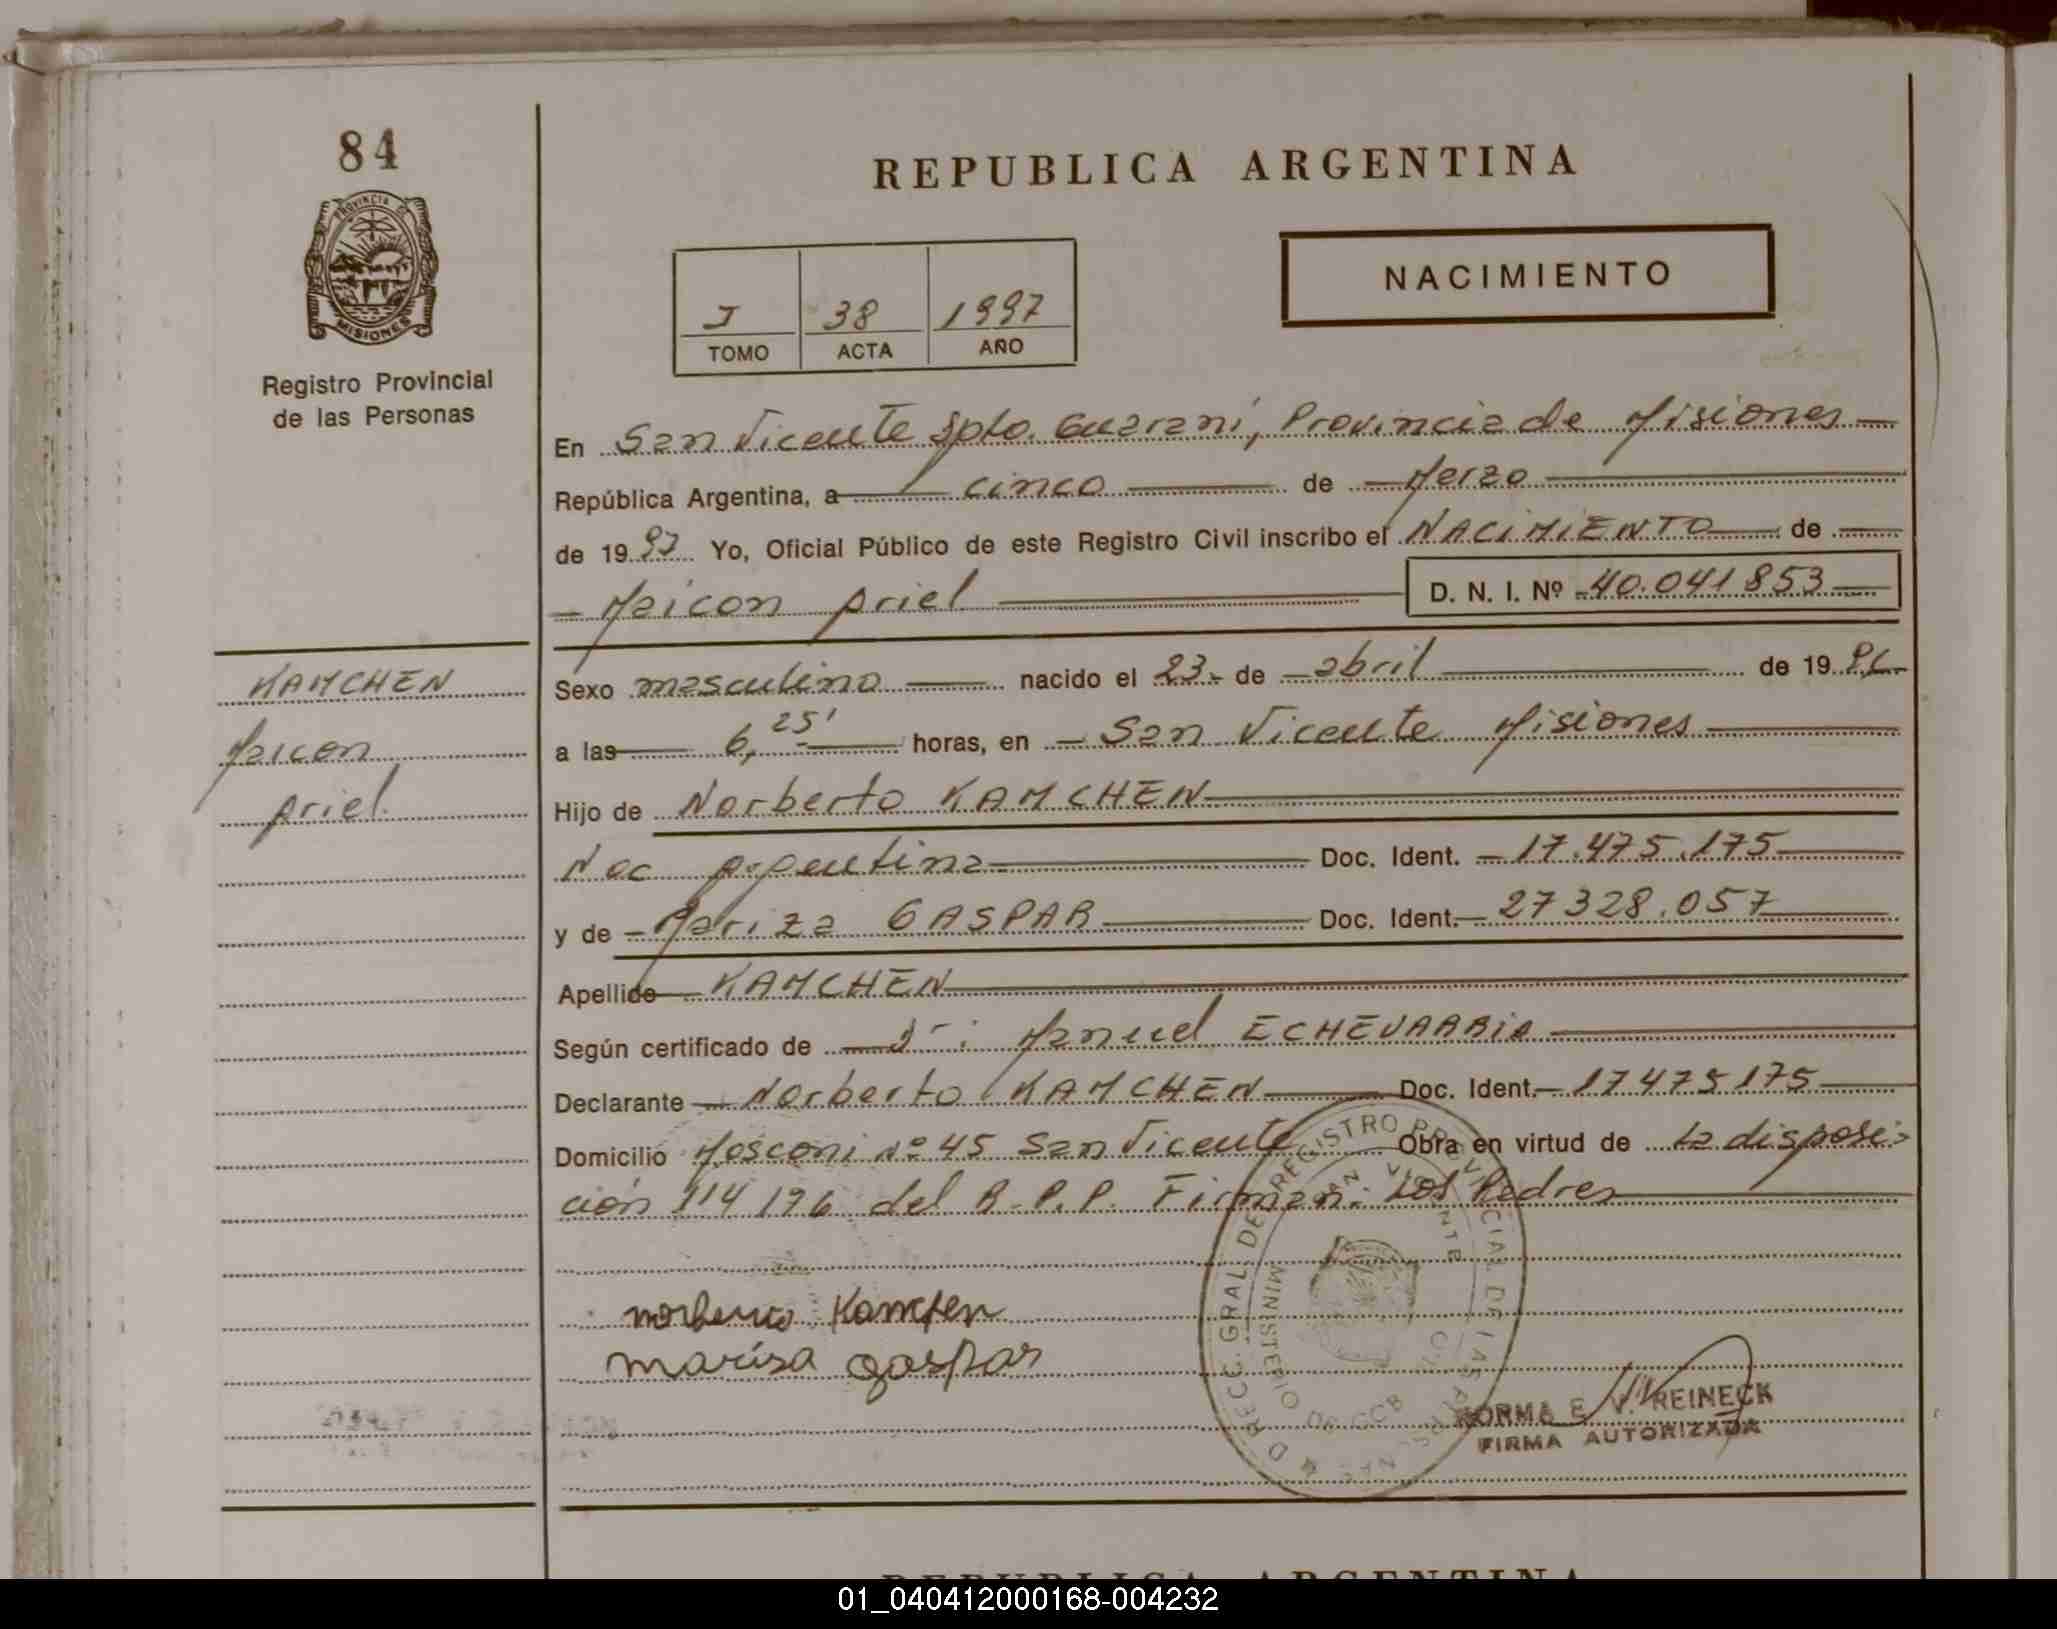 84
PROVINCIA DE
MISIONES
Registro Provincial
de las Personas
REPUBLICA ARGENTINA
I 38 1997
TOMO ACTA AÑO
NACIMIENTO
En San Vicente Dpto. Guaraní, Provincia de Misiones
República Argentina, a cinco de Marzo
de 1997 Yo, Oficial Público de este Registro Civil inscribo el NACIMIENTO de
Maicon Ariel D. N. I. Nº 40.041853
KAMCHEN
Maicon
Ariel
Sexo masculino nacido el 23 de abril de 1996
a las 6,25' horas, en San Vicente Misiones
Hijo de Norberto KAMCHEN
Nac Argentina Doc. Ident. 17.475.175
y de Mariza GASPAR Doc. Ident. 27328.057
Apellido KAMCHEN
Según certificado de Dr: Manuel ECHEVARRIA
Declarante Norberto KAMCHEN Doc. Ident. 17475175
Domicilio Mosconi nº 45 San Vicente Obra en virtud de La disposi-
ción 114/96 del R.P.P. Firman: Los Padres
norberto Kamchen
mariza gaspar
DIRECC. GRAL DE REGISTRO PROVINCIAL DE LAS PERSONAS
SAN VICENTE
MINISTERIO DE GOB
NORMA E. V. REINECK
FIRMA AUTORIZADA
REPUBLICA ARGENTINA
01_040412000168-004232